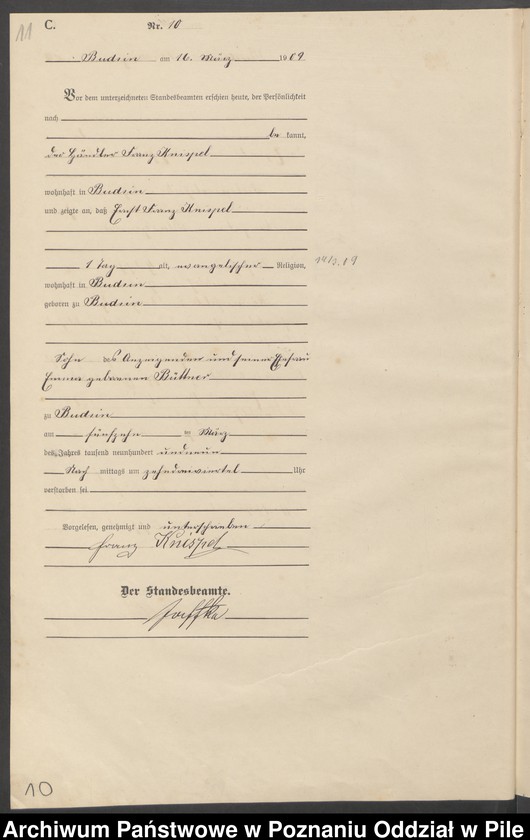 11
C.
Nr. 10
Budsin am 16. März 1909
Vor dem unterzeichneten Standesbeamten erschien heute, der Persönlichkeit
nach
be kannt,
der Händler Franz Knispel
wohnhaft in Budsin
und zeigte an, daß Franz Knispel
1 Tag alt, evangelischer Religion,
14/3.09
wohnhaft in Budsin
geboren zu Budsin
Sohn des Anzeigenden und seiner Ehefrau
Emma geborenen Büttner
zu Budsin
am fünfzehn ten März
des Jahres tausend neunhundert und neun
Nach mittags um zehndreiviertel Uhr
verstorben sei
Vorgelesen, genehmigt und unterschrieben
Franz Knispel
Der Standesbeamte.
10
Archiwum Państwowe w Poznaniu Oddział w Pile